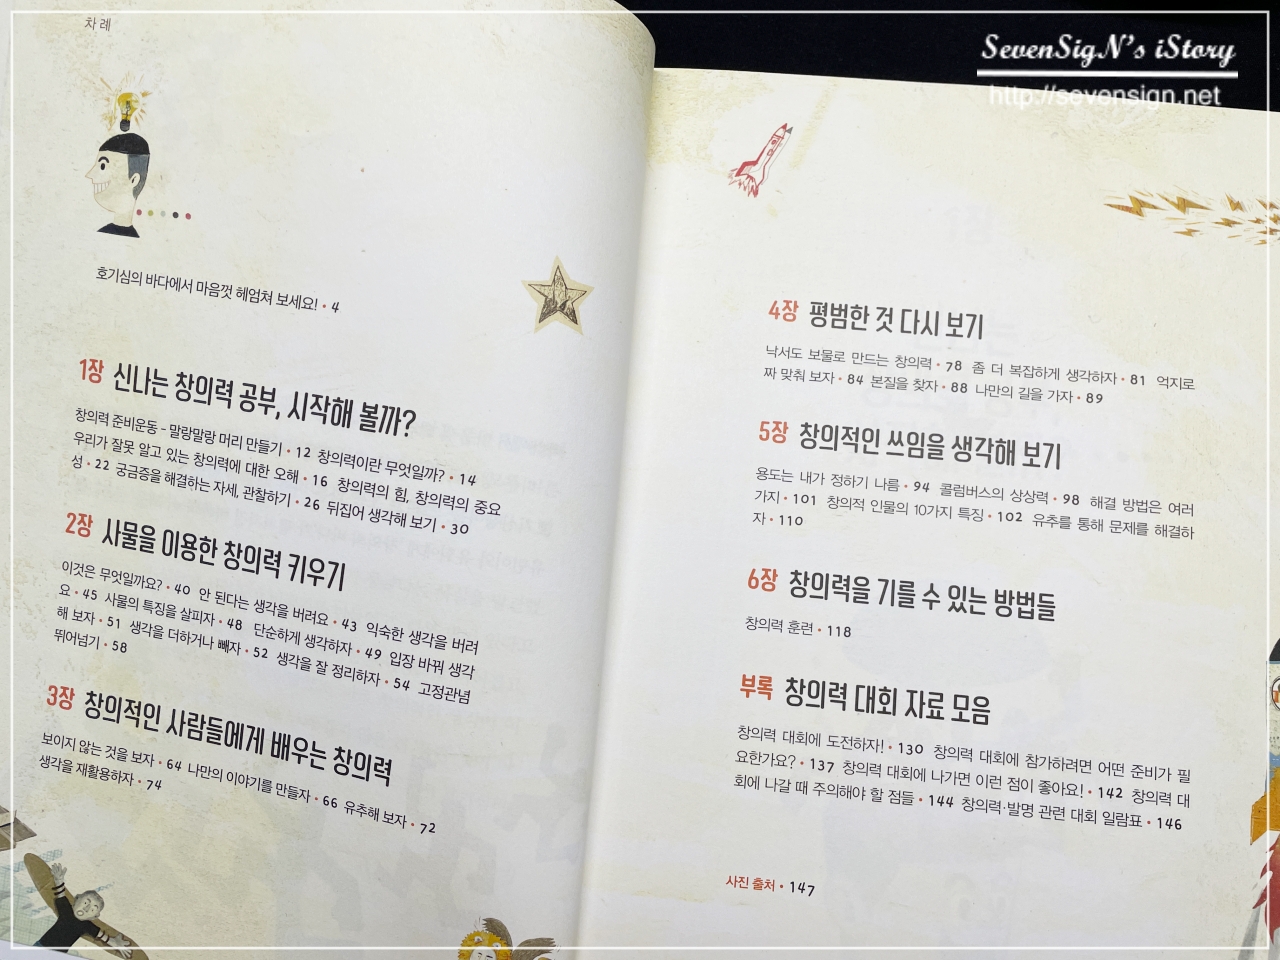 차례
호기심의 바다에서 마음껏 헤엄쳐 보세요! • 4
1장 신나는 창의력 공부, 시작해 볼까?
창의력 준비운동 - 말랑말랑 머리 만들기 • 12 창의력이란 무엇일까? • 14
우리가 잘못 알고 있는 창의력에 대한 오해 • 16 창의력의 힘, 창의력의 중요
성 • 22 궁금증을 해결하는 자세, 관찰하기 • 26 뒤집어 생각해 보기 • 30
2장 사물을 이용한 창의력 키우기
이것은 무엇일까요? • 40 안 된다는 생각을 버려요 • 43 익숙한 생각을 버려
요 • 45 사물의 특징을 살피자 • 48 단순하게 생각하자 • 49 입장 바꿔 생각
해 보자 • 51 생각을 더하거나 빼자 • 52 생각을 잘 정리하자 • 54 고정관념
뛰어넘기 • 58
3장 창의적인 사람들에게 배우는 창의력
보이지 않는 것을 보자 • 64 나만의 이야기를 만들자 • 66 유추해 보자 • 72
생각을 재활용하자 • 74
SevenSigN's iStory
http://sevensign.net
4장 평범한 것 다시 보기
낙서도 보물로 만드는 창의력 • 78 좀 더 복잡하게 생각하자 • 81 억지로
짜 맞춰 보자 • 84 본질을 찾자 • 88 나만의 길을 가자 • 89
5장 창의적인 쓰임을 생각해 보기
용도는 내가 정하기 나름 • 94 콜럼버스의 상상력 • 98 해결 방법은 여러
가지 • 101 창의적 인물의 10가지 특징 • 102 유추를 통해 문제를 해결하
자 • 110
6장 창의력을 기를 수 있는 방법들
창의력 훈련 • 118
부록 창의력 대회 자료 모음
창의력 대회에 도전하자! • 130 창의력 대회에 참가하려면 어떤 준비가 필
요한가요? • 137 창의력 대회에 나가면 이런 점이 좋아요! • 142 창의력 대
회에 나갈 때 주의해야 할 점들 • 144 창의력·발명 관련 대회 일람표 • 146
사진 출처 • 147